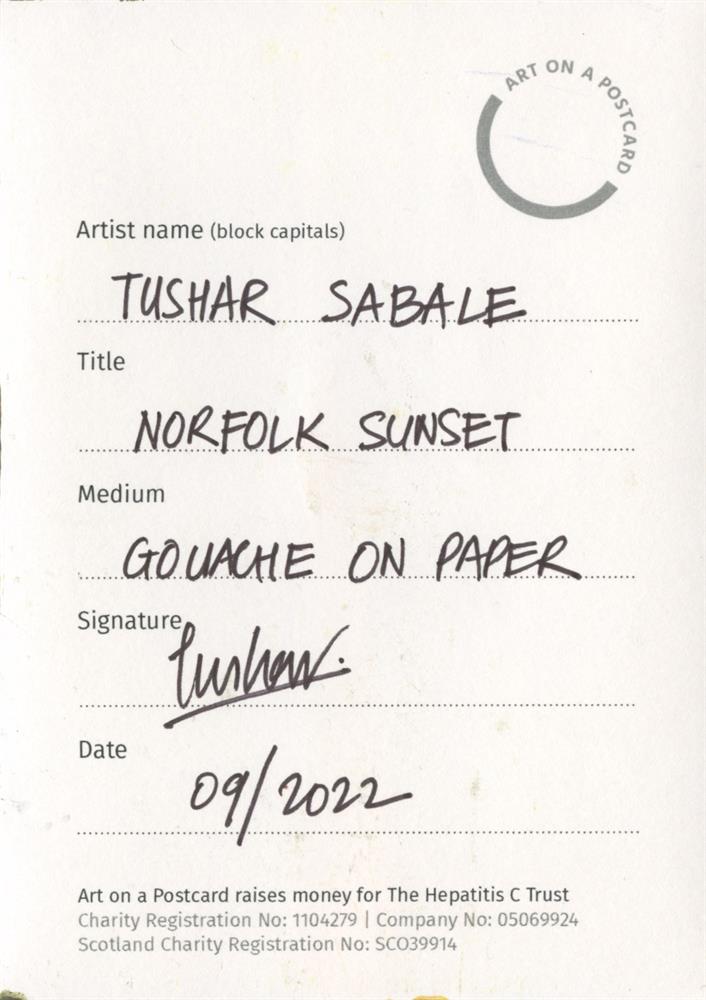 ART ON A POSTCARD
Artist name (block capitals)
TUSHAR SABALE
Title
NORFOLK SUNSET
Medium
GOUACHE ON PAPER
Signature
Tushar.
Date
09/2022
Art on a Postcard raises money for The Hepatitis C Trust
Charity Registration No: 1104279 | Company No: 05069924
Scotland Charity Registration No: SCO39914